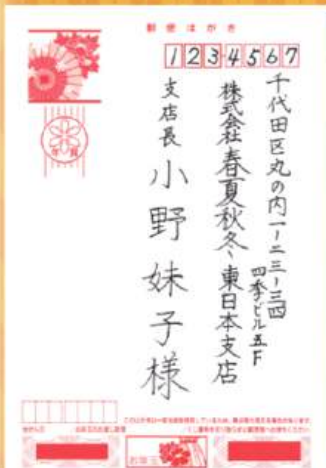 郵便はがき
1234567
千代田区丸の内一ー二三ー三四
四季ビル五F
株式会社春夏秋冬、東日本支店
支店長 小野妹子様
年賀
お年玉